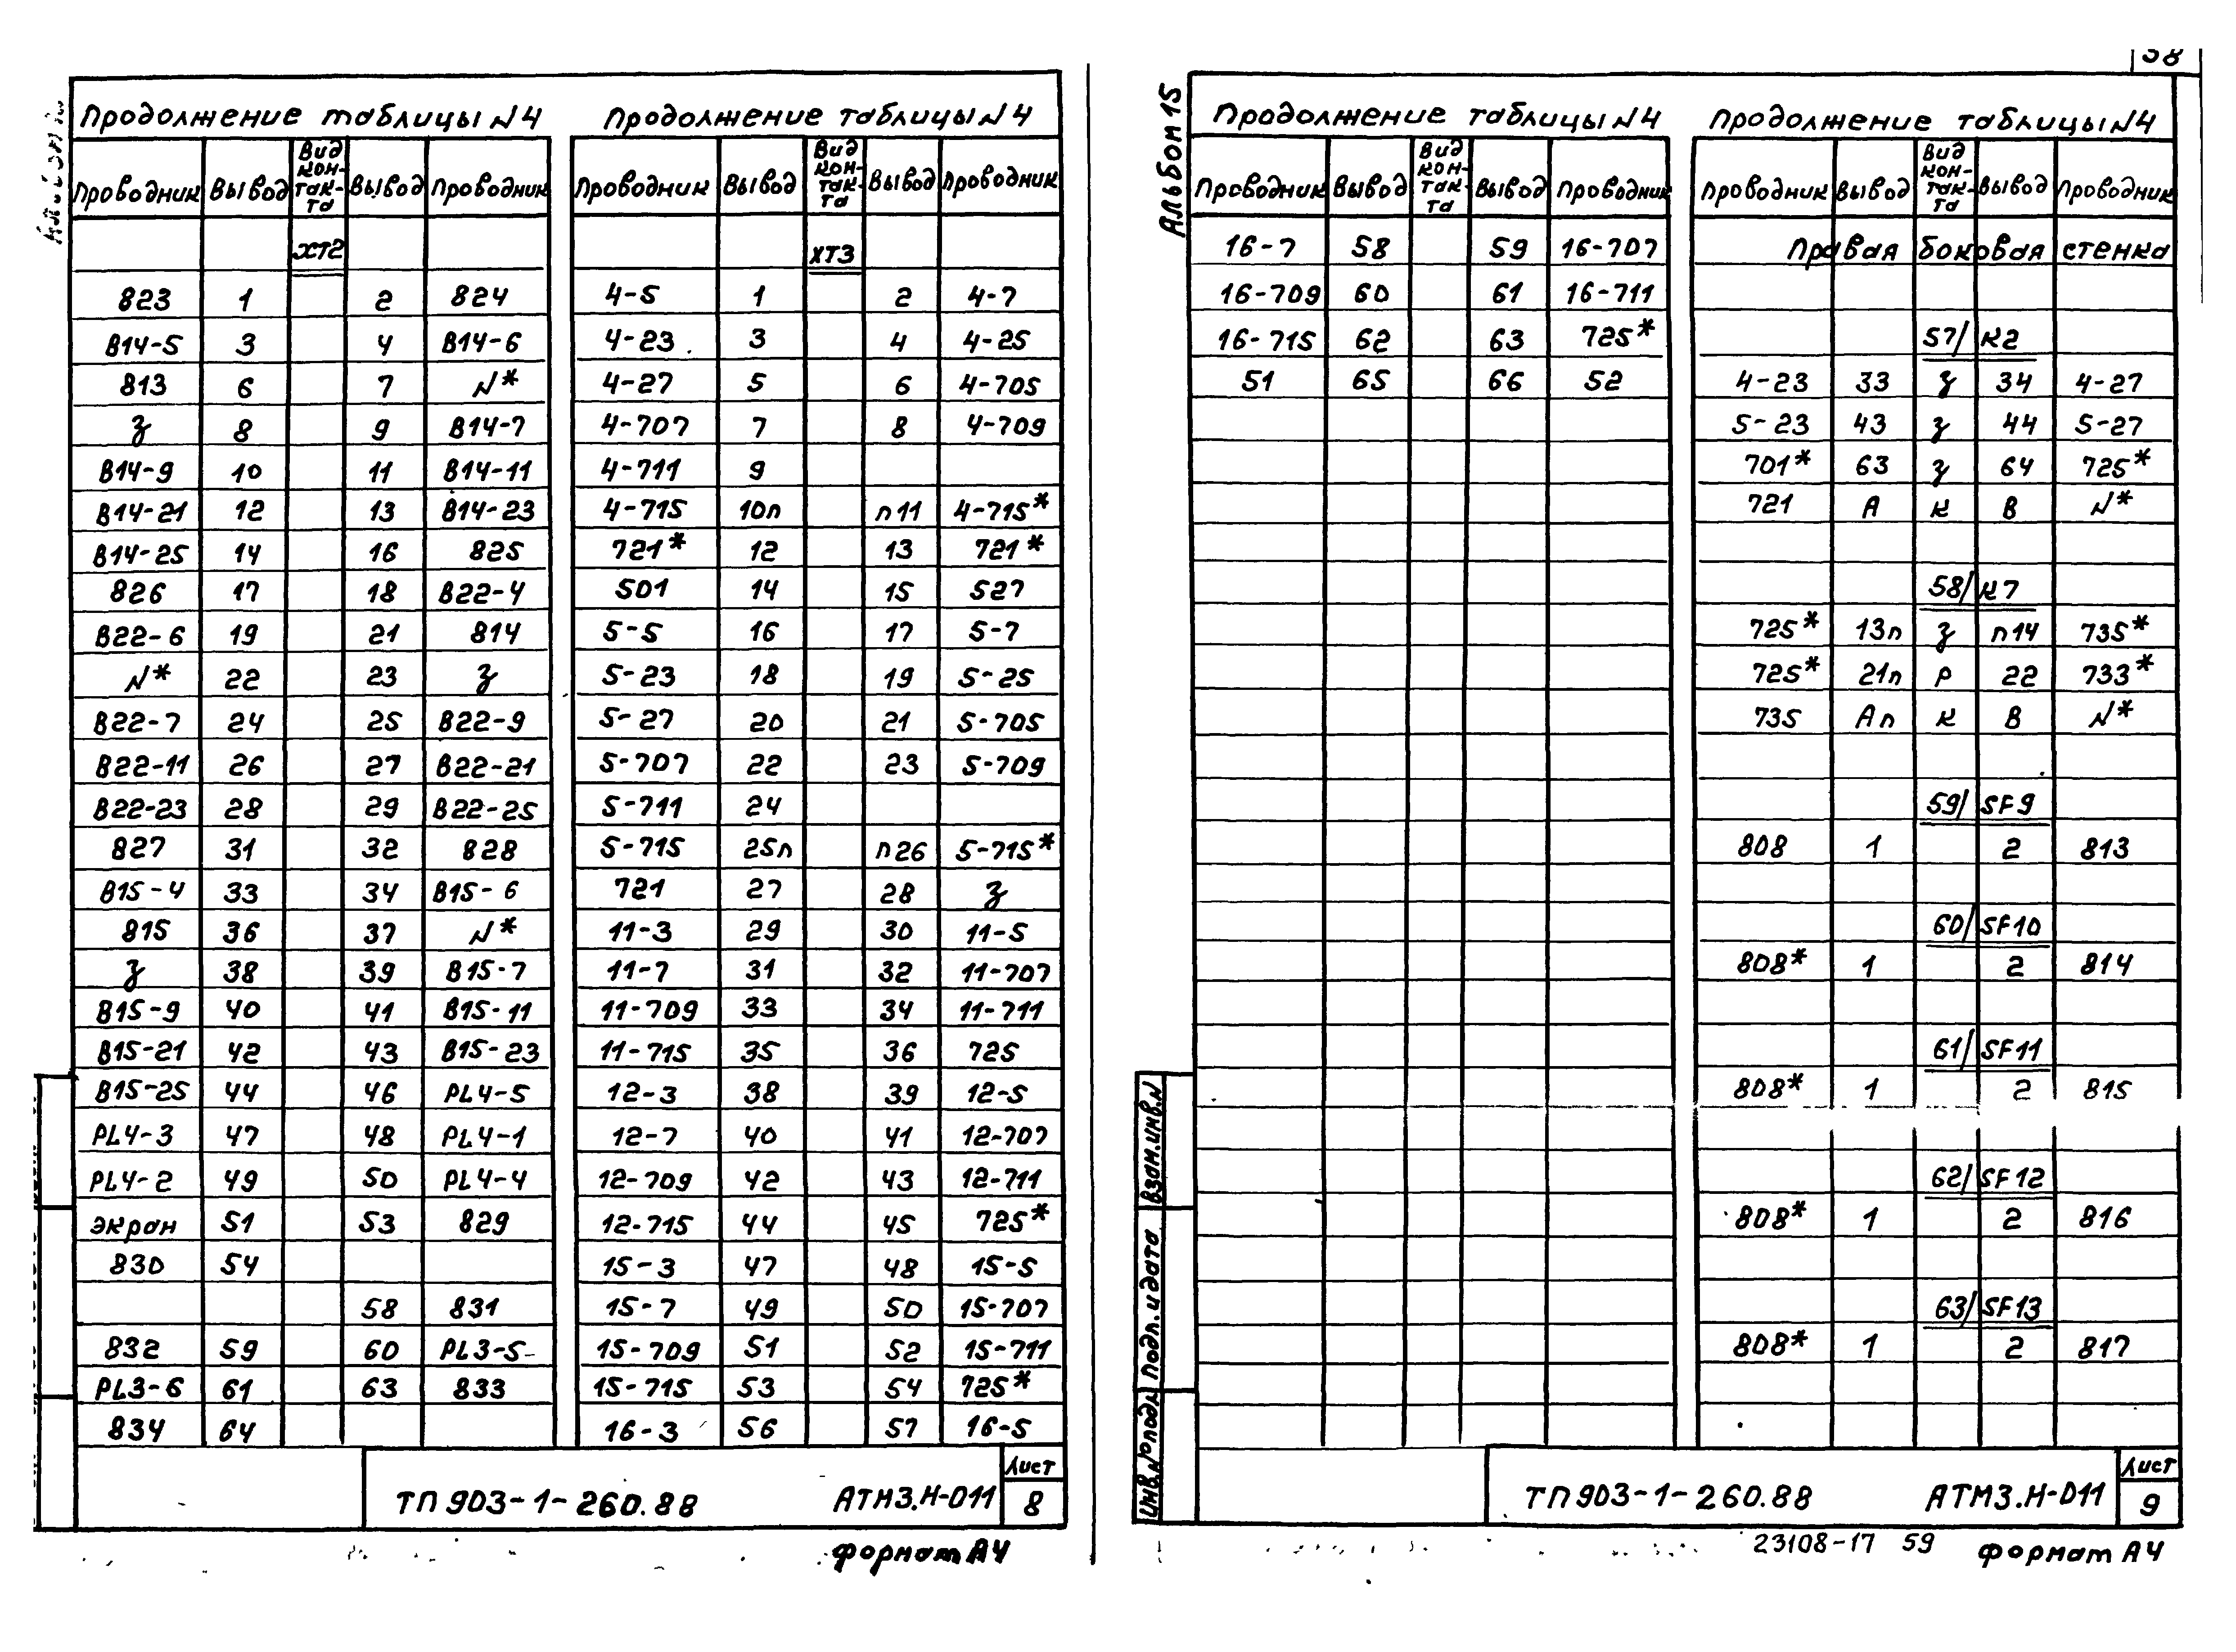 58
Альбом 15
Продолжение таблицы N4
Проводник Вывод Вид контакта Вывод Проводник
ХТ2
823 1 2 824
В14-5 3 4 В14-6
813 6 7 N*
З 8 9 В14-7
В14-9 10 11 В14-11
В14-21 12 13 В14-23
В14-25 14 16 825
826 17 18 В22-4
В22-6 19 21 814
N* 22 23 З
В22-7 24 25 В22-9
В22-11 26 27 В22-21
В22-23 28 29 В22-25
827 31 32 828
В15-4 33 34 В15-6
815 36 37 N*
З 38 39 В15-7
В15-9 40 41 В15-11
В15-21 42 43 В15-23
В15-25 44 46 PL4-5
PL4-3 47 48 PL4-1
PL4-2 49 50 PL4-4
экран 51 53 829
830 54
58 831
832 59 60 PL3-5
PL3-6 61 63 833
834 64
Продолжение таблицы N4
Проводник Вывод Вид контакта Вывод Проводник
ХТ3
4-5 1 2 4-7
4-23 3 4 4-25
4-27 5 6 4-705
4-707 7 8 4-709
4-711 9
4-715 10п п11 4-715*
721* 12 13 721*
501 14 15 527
5-5 16 17 5-7
5-23 18 19 5-25
5-27 20 21 5-705
5-707 22 23 5-709
5-711 24
5-715 25п п26 5-715*
721 27 28 З
11-3 29 30 11-5
11-7 31 32 11-707
11-709 33 34 11-711
11-715 35 36 725
12-3 38 39 12-5
12-7 40 41 12-707
12-709 42 43 12-711
12-715 44 45 725*
15-3 47 48 15-5
15-7 49 50 15-707
15-709 51 52 15-711
15-715 53 54 725*
16-3 56 57 16-5
ТП 903-1-260.88 АТМ3.Н-011 Лист 8
формат А4
Альбом 15
Продолжение таблицы N4
Проводник Вывод Вид контакта Вывод Проводник
16-7 58 59 16-707
16-709 60 61 16-711
16-715 62 63 725*
51 65 66 52
Продолжение таблицы N4
Проводник Вывод Вид контакта Вывод Проводник
Правая боковая стенка
57/К2
4-23 33 З 34 4-27
5-23 43 З 44 5-27
701* 63 З 64 725*
721 А К В N*
58/К7
725* 13п З п14 735*
725* 21п Р 22 733*
735 Ап К В N*
59/SF9
808 1 2 813
60/SF10
808* 1 2 814
61/SF11
808* 1 2 815
62/SF12
808* 1 2 816
63/SF13
808* 1 2 817
Взам.инв.N
Подп. и дата
Инв.N подл
ТП 903-1-260.88 АТМ3.Н-011 Лист 9
23108-17 59 формат А4